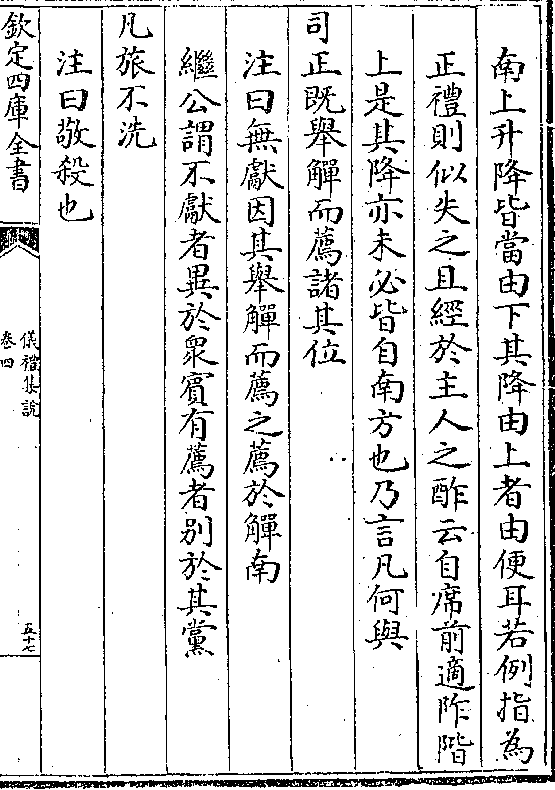 南上升降皆當由下其降由上者由便耳若例指為
正禮則似失之且經於主人之酢云自席前適阼階
上是其降亦未必皆自南方也乃言凡何與
司正既舉觶而薦諸其位
注曰無獻因其舉觶而薦之薦於觶南
繼公謂不獻者異於衆賓有薦者别於其黨
凡旅不洗
注曰敬殺也
欽定四庫全書
儀禮集說
卷四
五十七